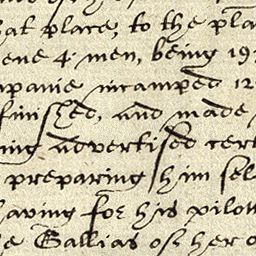 hat place, to the pla
ene 4. men, being 19
panie incamped 12
finished, and made
ing advertised cert
preparing him sel
having for his pilott
e Gallias or her o